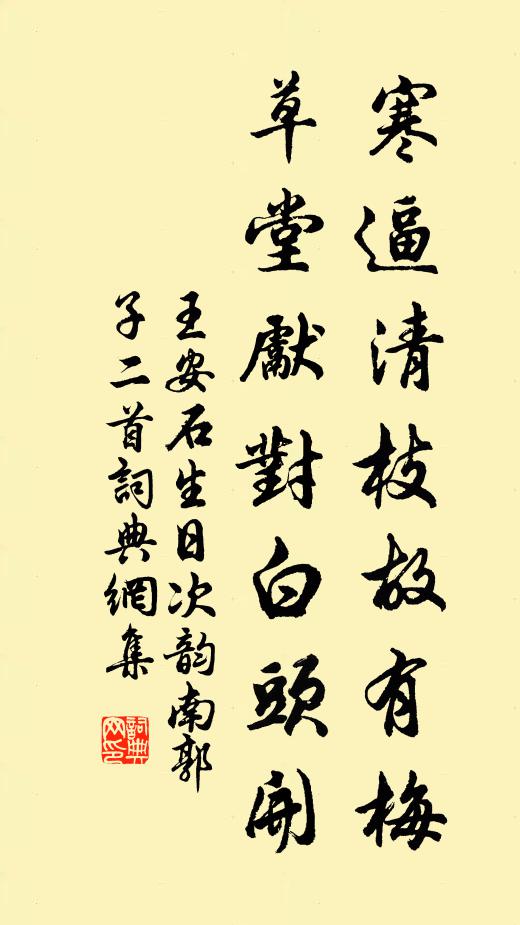 寒逼清枝故有梅
草堂獻對白頭開
王安石生日次韵南郭
子二首詞典網集
詞典网印